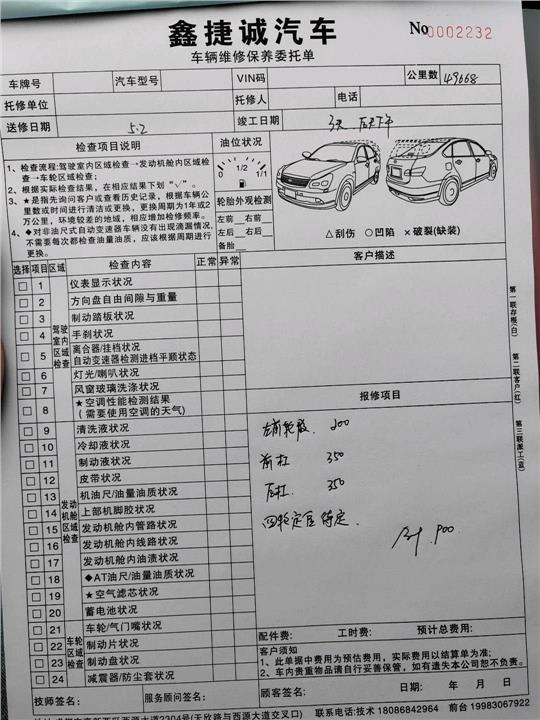 鑫捷诚汽车
No 0002232
车辆维修保养委托单
车牌号 汽车型号 VIN码 公里数 49668
托修单位 托修人 电话
送修日期 5.2 竣工日期
检查项目说明
1、检查流程:驾驶室内区域检查→发动机舱内区域检查→车轮区域检查;
2、根据实际检查结果,在相应结果下划“√”。
3、★是指先询问客户或查看历史记录,根据车辆公里数或时间进行清洁或更换,更换周期为1年或2万公里,环境较差的地域,相应增加检修频率。
4、◆对非油尺式自动变速器车辆没有出现滴漏情况,不需要每次都检查油量油质,应该根据周期进行更换。
油位状况
0 1/2 1/1
轮胎外观检测
左前 右前
左后 右后
备胎
△刮伤 ○凹陷 ×破裂(缺装)
选择 项目 区域 检查内容 正常 异常
客户描述
驾驶室内区域检查
□ 1 仪表显示状况
□ 2 方向盘自由间隙与重量
□ 3 制动踏板状况
□ 4 手刹状况
□ 5 离合器/挂档状况
自动变速器检测进档平顺状态
□ 6 灯光/喇叭状况
□ 7 风窗玻璃洗涤状况
□ 8 ★空调性能检测结果
(需要使用空调的天气)
发动机舱区域检查
□ 9 清洗液状况
□ 10 冷却液状况
□ 11 制动液状况
□ 12 皮带状况
□ 13 机油尺/油量油质状况
□ 14 上部机脚胶状况
□ 15 发动机舱内管路状况
□ 16 发动机舱内线路状况
□ 17 发动机舱内油渍状况
□ 18 ◆AT油尺/油量油质状况
□ 19 ★空气滤芯状况
□ 20 蓄电池状况
车轮区域检查
□ 21 车轮/气门嘴状况
□ 22 制动片状况
□ 23 制动盘状况
□ 24 减震器/防尘套状况
报修项目
左前轮毂 200
前杠 350
后杠 350
四轮定位 待定
计 900
第一联存根(白)
第二联客户(红)
第三联派工(蓝)
配件费: 工时费: 预计总费用:
客户须知
1、此单据中费用为预估费用,实际费用以结算单为准;
2、车内贵重物品请自行妥善保管,如有遗失本公司恕不负责。
技师签名: 服务顾问签名: 客户签名: 日期: 年 月 日
2304号(天欣路与西源大道交叉口) 联系电话:技术 18086842964 前台 19983067922